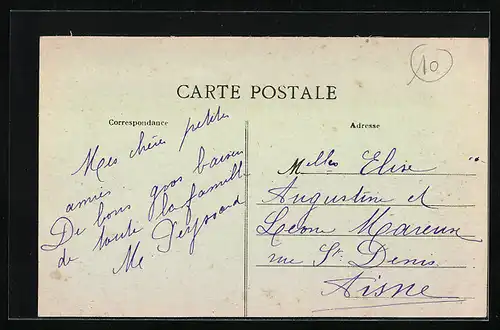 10
CARTE POSTALE
Correspondance
Adresse
Mes chères petites
amies.
De bons gros baisers
de toute la famille
M
Melles Elise
Augustine et
rue St Denis
Aisne